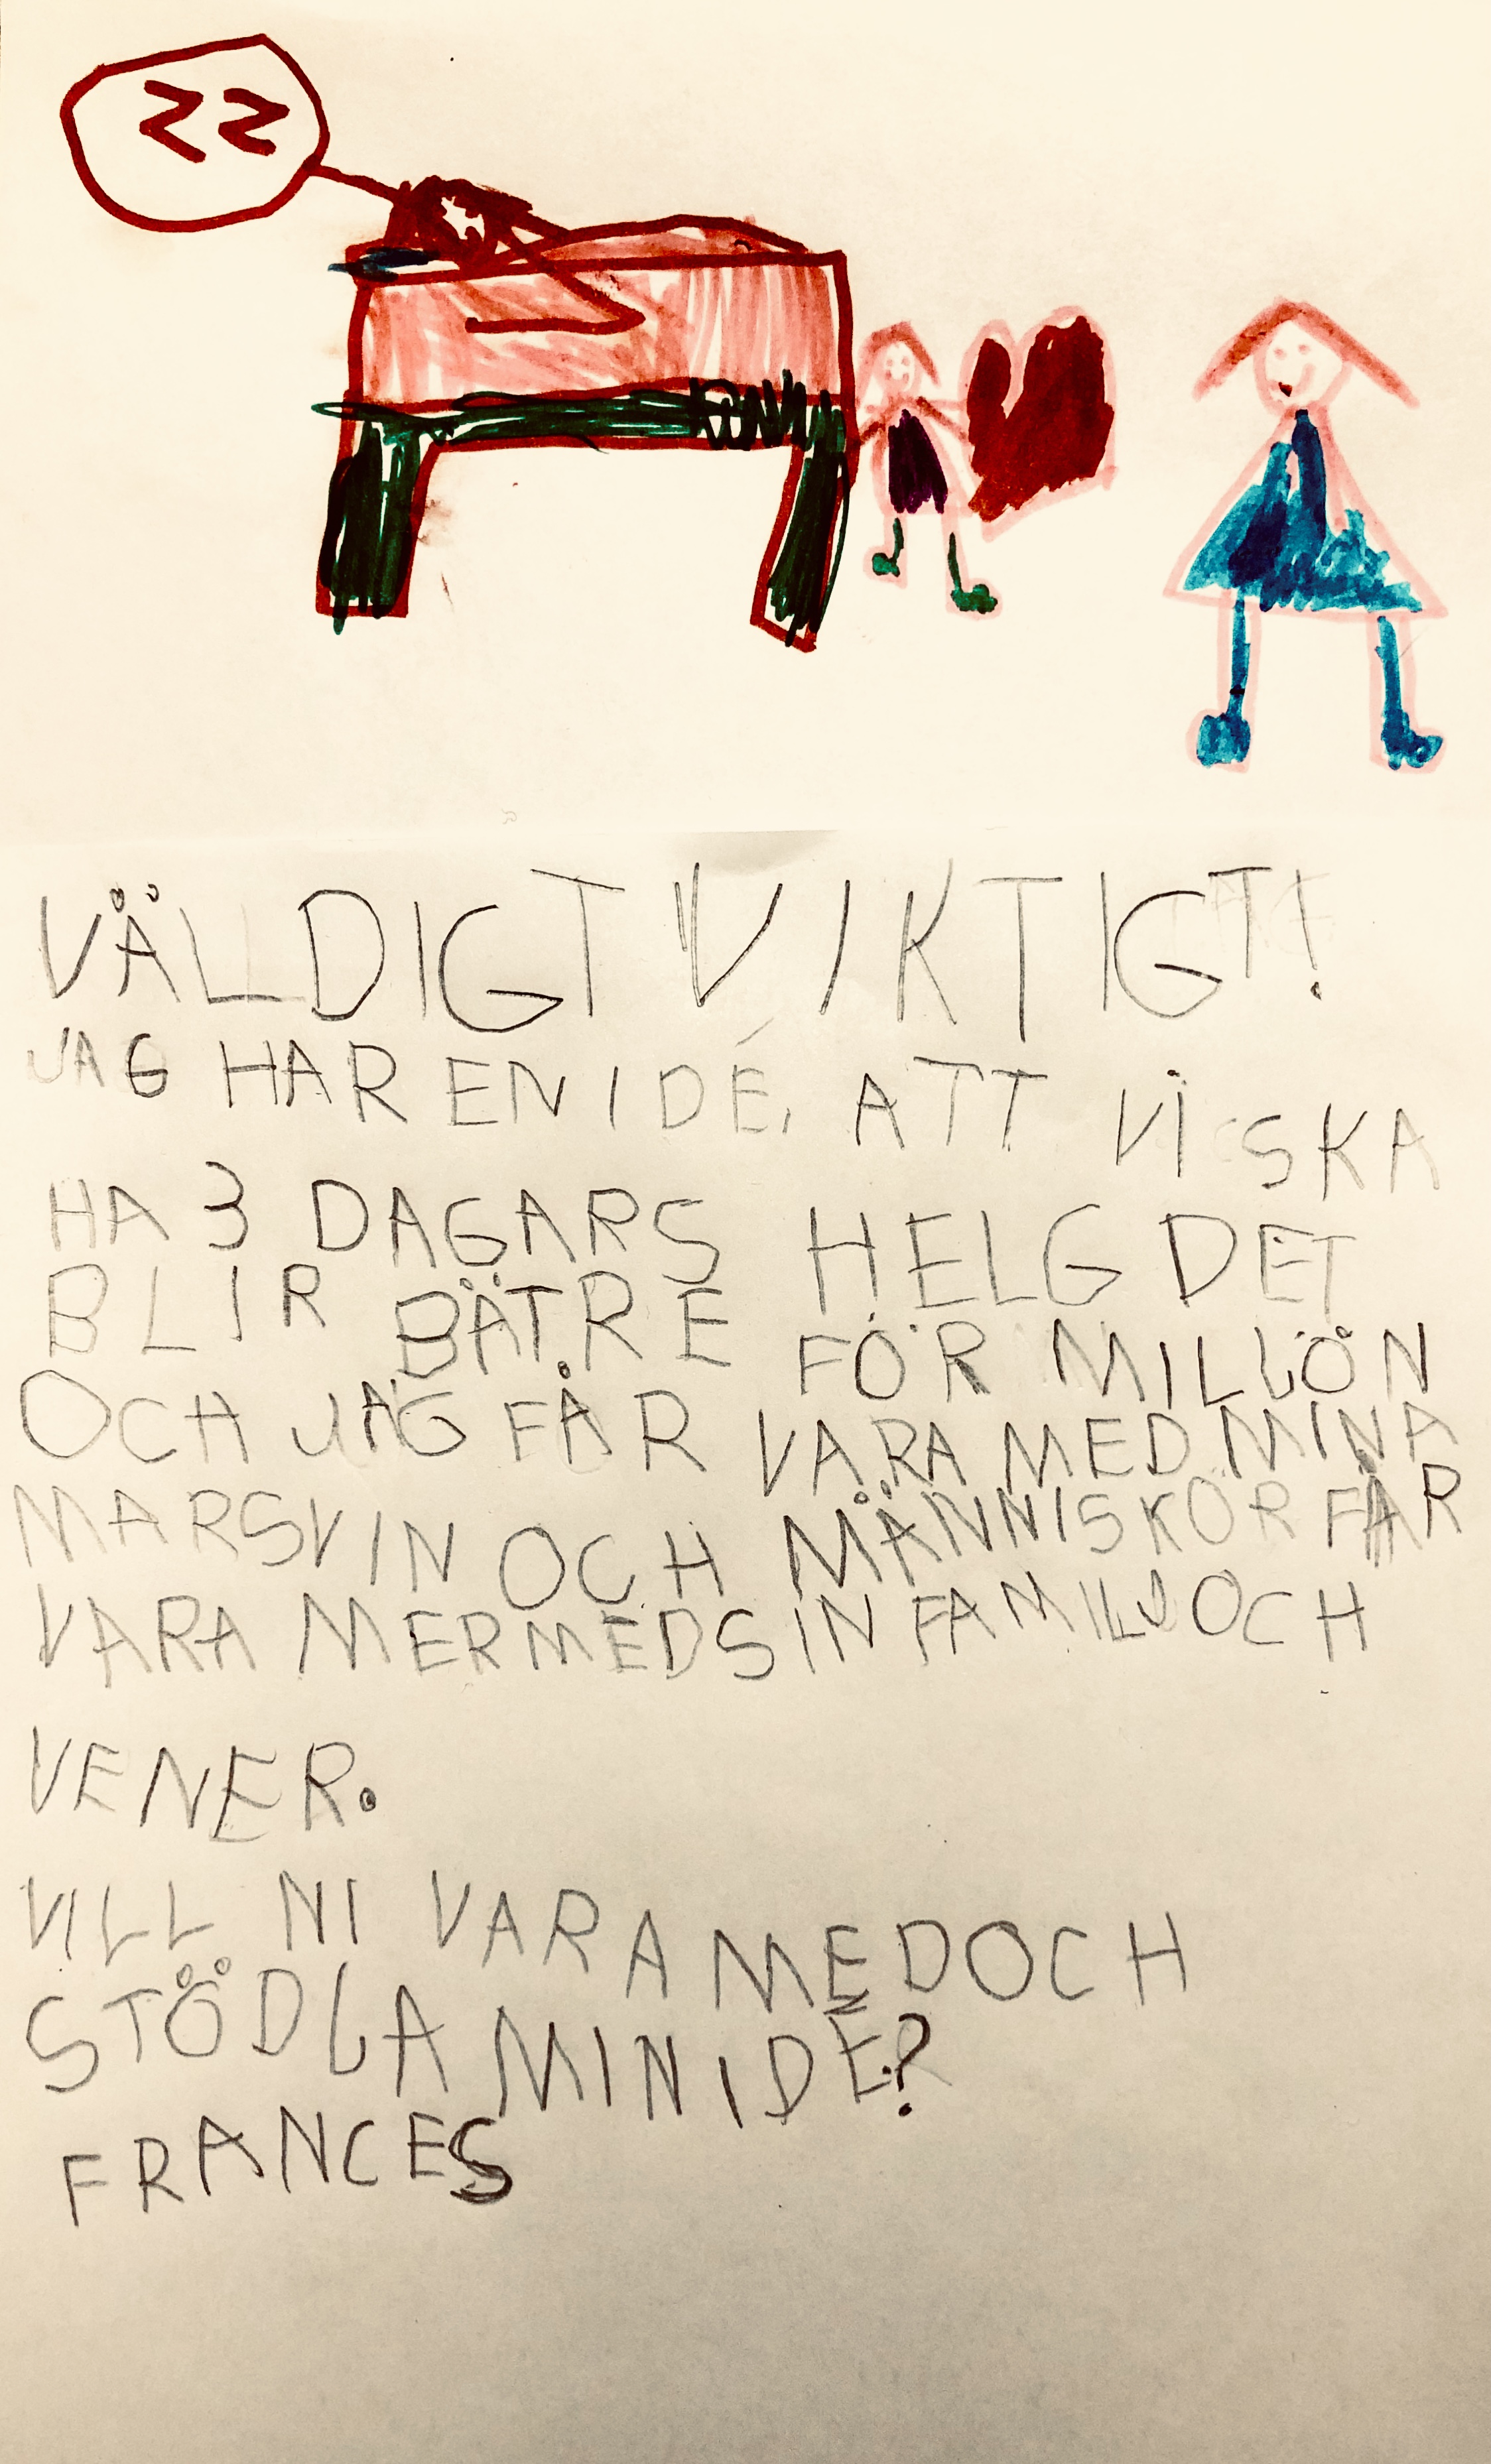 ZZ
VÄLLDIGT VIKTIGT!
JAG HAR EN IDÉ, ATT VI SKA
HA 3 DAGARS HELG DET
BLIR BÄTRE FÖR MILLÖN
OCH JAG FÅR VARA MED MINA
MARSVIN OCH MÄNNISKOR FÅR
VARA MER MED SIN FAMILJ OCH
VENER.
VILL NI VARA MED OCH
STÖDLA MIN IDÉ?
FRANCES